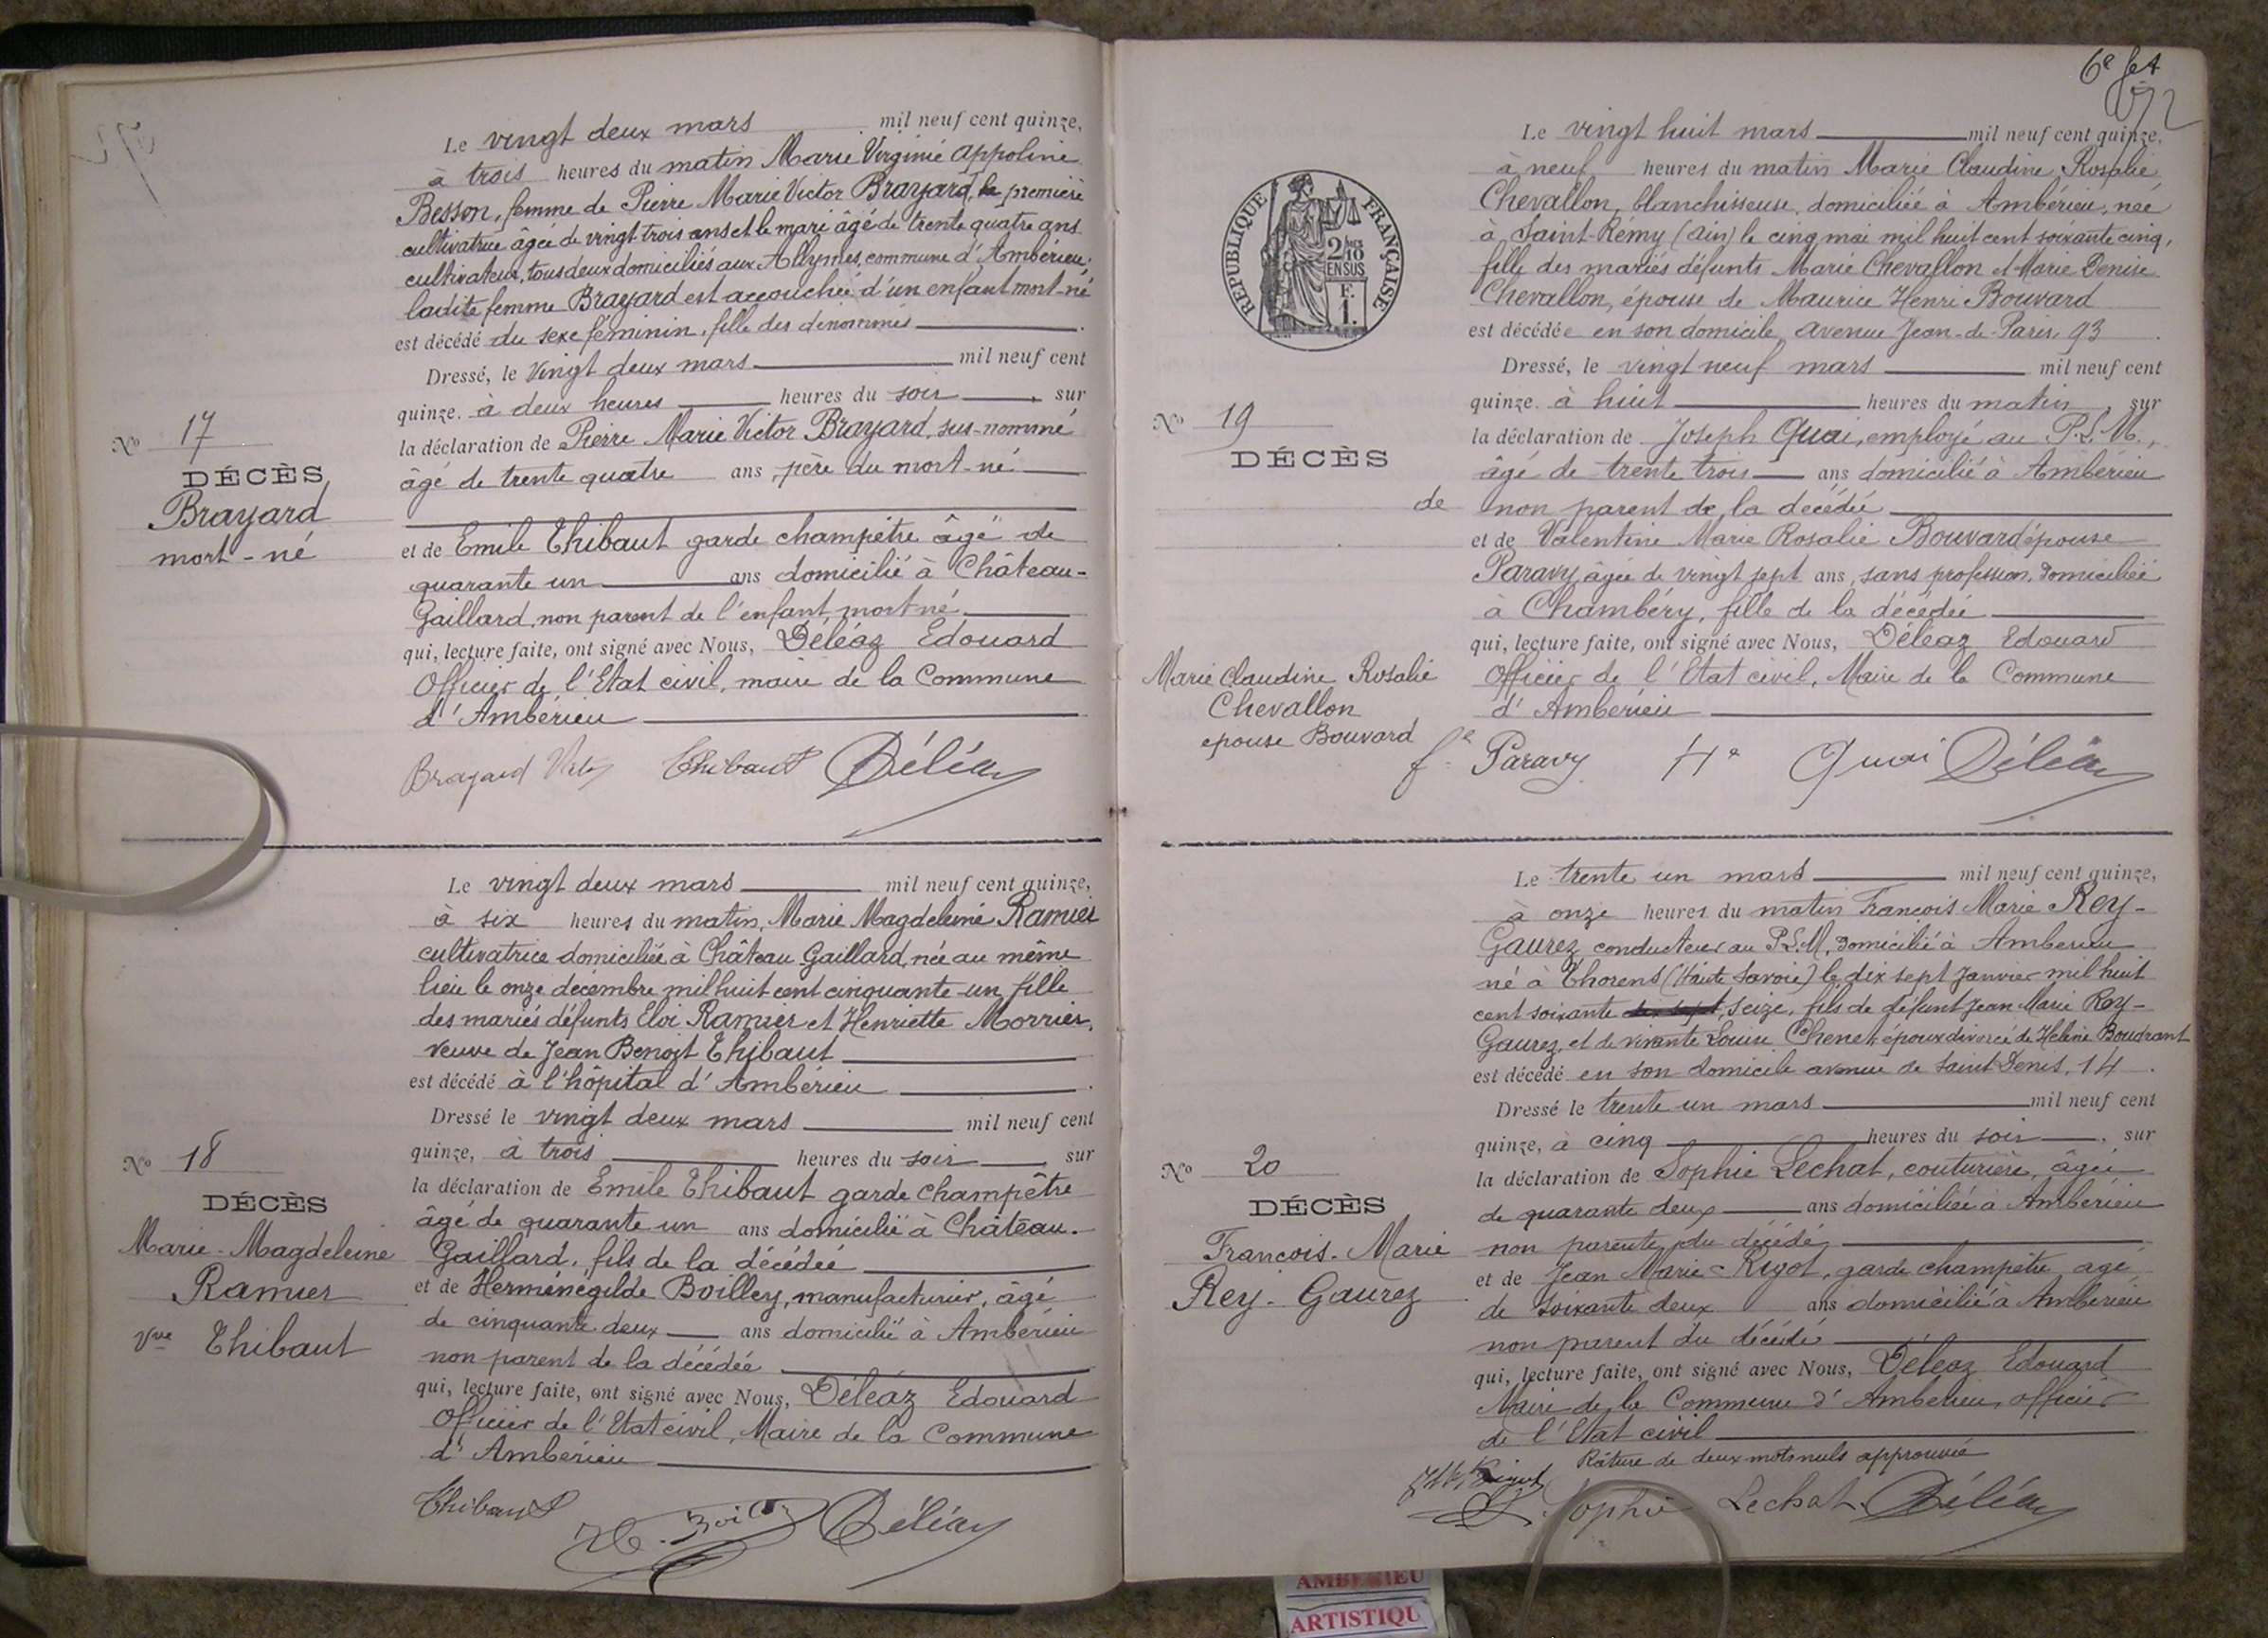 Le vingt deux mars mil neuf cent quinze,
à trois heures du matin Marie Virginie Appoline
Besson, femme de Pierre Marie Victor Brayard, la première
cultivatrice âgée de vingt trois ans et le mari âgé de trente quatre ans
cultivateur, tous deux domiciliés aux Allymes, commune d'Ambérieu,
ladite femme Brayard est accouchée d'un enfant mort-né
est décédé du sexe féminin, fille des dénommés
Dressé, le vingt deux mars mil neuf cent
quinze. à deux heures heures du soir, sur
la déclaration de Pierre Marie Victor Brayard, sus-nommé
âgé de trente quatre ans, père du mort-né
et de Emile Thibaut garde champêtre âgé de
quarante un ans domicilié à Château-
Gaillard, non parent de l'enfant mort né
qui, lecture faite, ont signé avec Nous, Déléaz Edouard
Officier de l'Etat civil, maire de la Commune
d'Ambérieu
No 17
DÉCÈS
Brayard
mort-né
Brayard Thibaut Déléaz
Le vingt deux mars mil neuf cent quinze,
à six heures du matin, Marie Magdeleine Ramier
cultivatrice domiciliée à Château Gaillard, née au même
lieu le onze décembre mil huit cent cinquante-un, fille
des mariés défunts Eloi Ramier et Henriette Morrier,
veuve de Jean Benoît Thibaut
est décédé à l'hôpital d'Ambérieu
Dressé le vingt deux mars mil neuf cent
quinze, à trois heures du soir, sur
la déclaration de Emile Thibaut garde champêtre
âgé de quarante-un ans domicilié à Château-
Gaillard, fils de la décédée
et de Herménégilde Boilley, manufacturier, âgé
de cinquante deux ans domicilié à Ambérieu
non parent de la décédée
qui, lecture faite, ont signé avec Nous, Déléaz Edouard
Officier de l'Etat civil, Maire de la Commune
d'Ambérieu
No 18
DÉCÈS
Marie-Magdeleine
Ramier
Vve Thibaut
Thibaut Déléaz
6e
Le vingt huit mars mil neuf cent quinze,
à neuf heures du matin Marie Claudine Rosalie
Chevallon, blanchisseuse, domiciliée à Ambérieu, née
à Saint-Rémy (Ain) le cinq mai mil huit cent soixante cinq,
fille des mariés défunts Marie Chevallon et Marie Denise
Chevallon, épouse de Maurice Henri Bouvard
est décédée en son domicile, avenue Jean-de-Paris, 93
Dressé, le vingt neuf mars mil neuf cent
quinze à huit heures du matin, sur
la déclaration de Joseph Quai, employé au P.L.M.,
âgé de trente trois ans domicilié à Ambérieu
non parent de la décédée
et de Valentine Marie Rosalie Bouvard épouse
Paravy, âgée de vingt sept ans, sans profession, domiciliée
à Chambéry, fille de la décédée
qui, lecture faite, ont signé avec Nous, Déléaz Edouard
Officier de l'Etat civil, Maire de la Commune
d'Ambérieu
RÉPUBLIQUE FRANÇAISE
2/10
EN SUS
F.
1.
No 19
DÉCÈS
de
Marie Claudine Rosalie
Chevallon
épouse Bouvard
fe Paravy Quai Déléaz
Le trente un mars mil neuf cent quinze,
à onze heures du matin François Marie Rey-
Gaurez, conducteur au P.L.M, domicilié à Ambérieu
né à Thorens (Haute Savoie) le dix sept janvier mil huit
cent soixante seize, fils de défunt Jean Marie Rey-
Gaurez, et de vivante Louise Chenet, époux divorcé de Hélène Boudrant
est décédé en son domicile avenue de Saint Denis, 14
Dressé le trente un mars mil neuf cent
quinze, à cinq heures du soir, sur
la déclaration de Sophie Lechat, couturière, âgée
de quarante deux ans domiciliée à Ambérieu
non parente du décédé
et de Jean Marie Rigot, garde champêtre âgé
de soixante deux ans domicilié à Ambérieu
non parent du décédé
qui, lecture faite, ont signé avec Nous, Déléaz Edouard
Maire de la Commune d'Ambérieu, officier
de l'Etat civil
Râture de deux mots nuls approuvée
No 20
DÉCÈS
François-Marie
Rey-Gaurez
Rigot Sophie Lechat Déléaz
AMBERIEU
ARTISTIQU